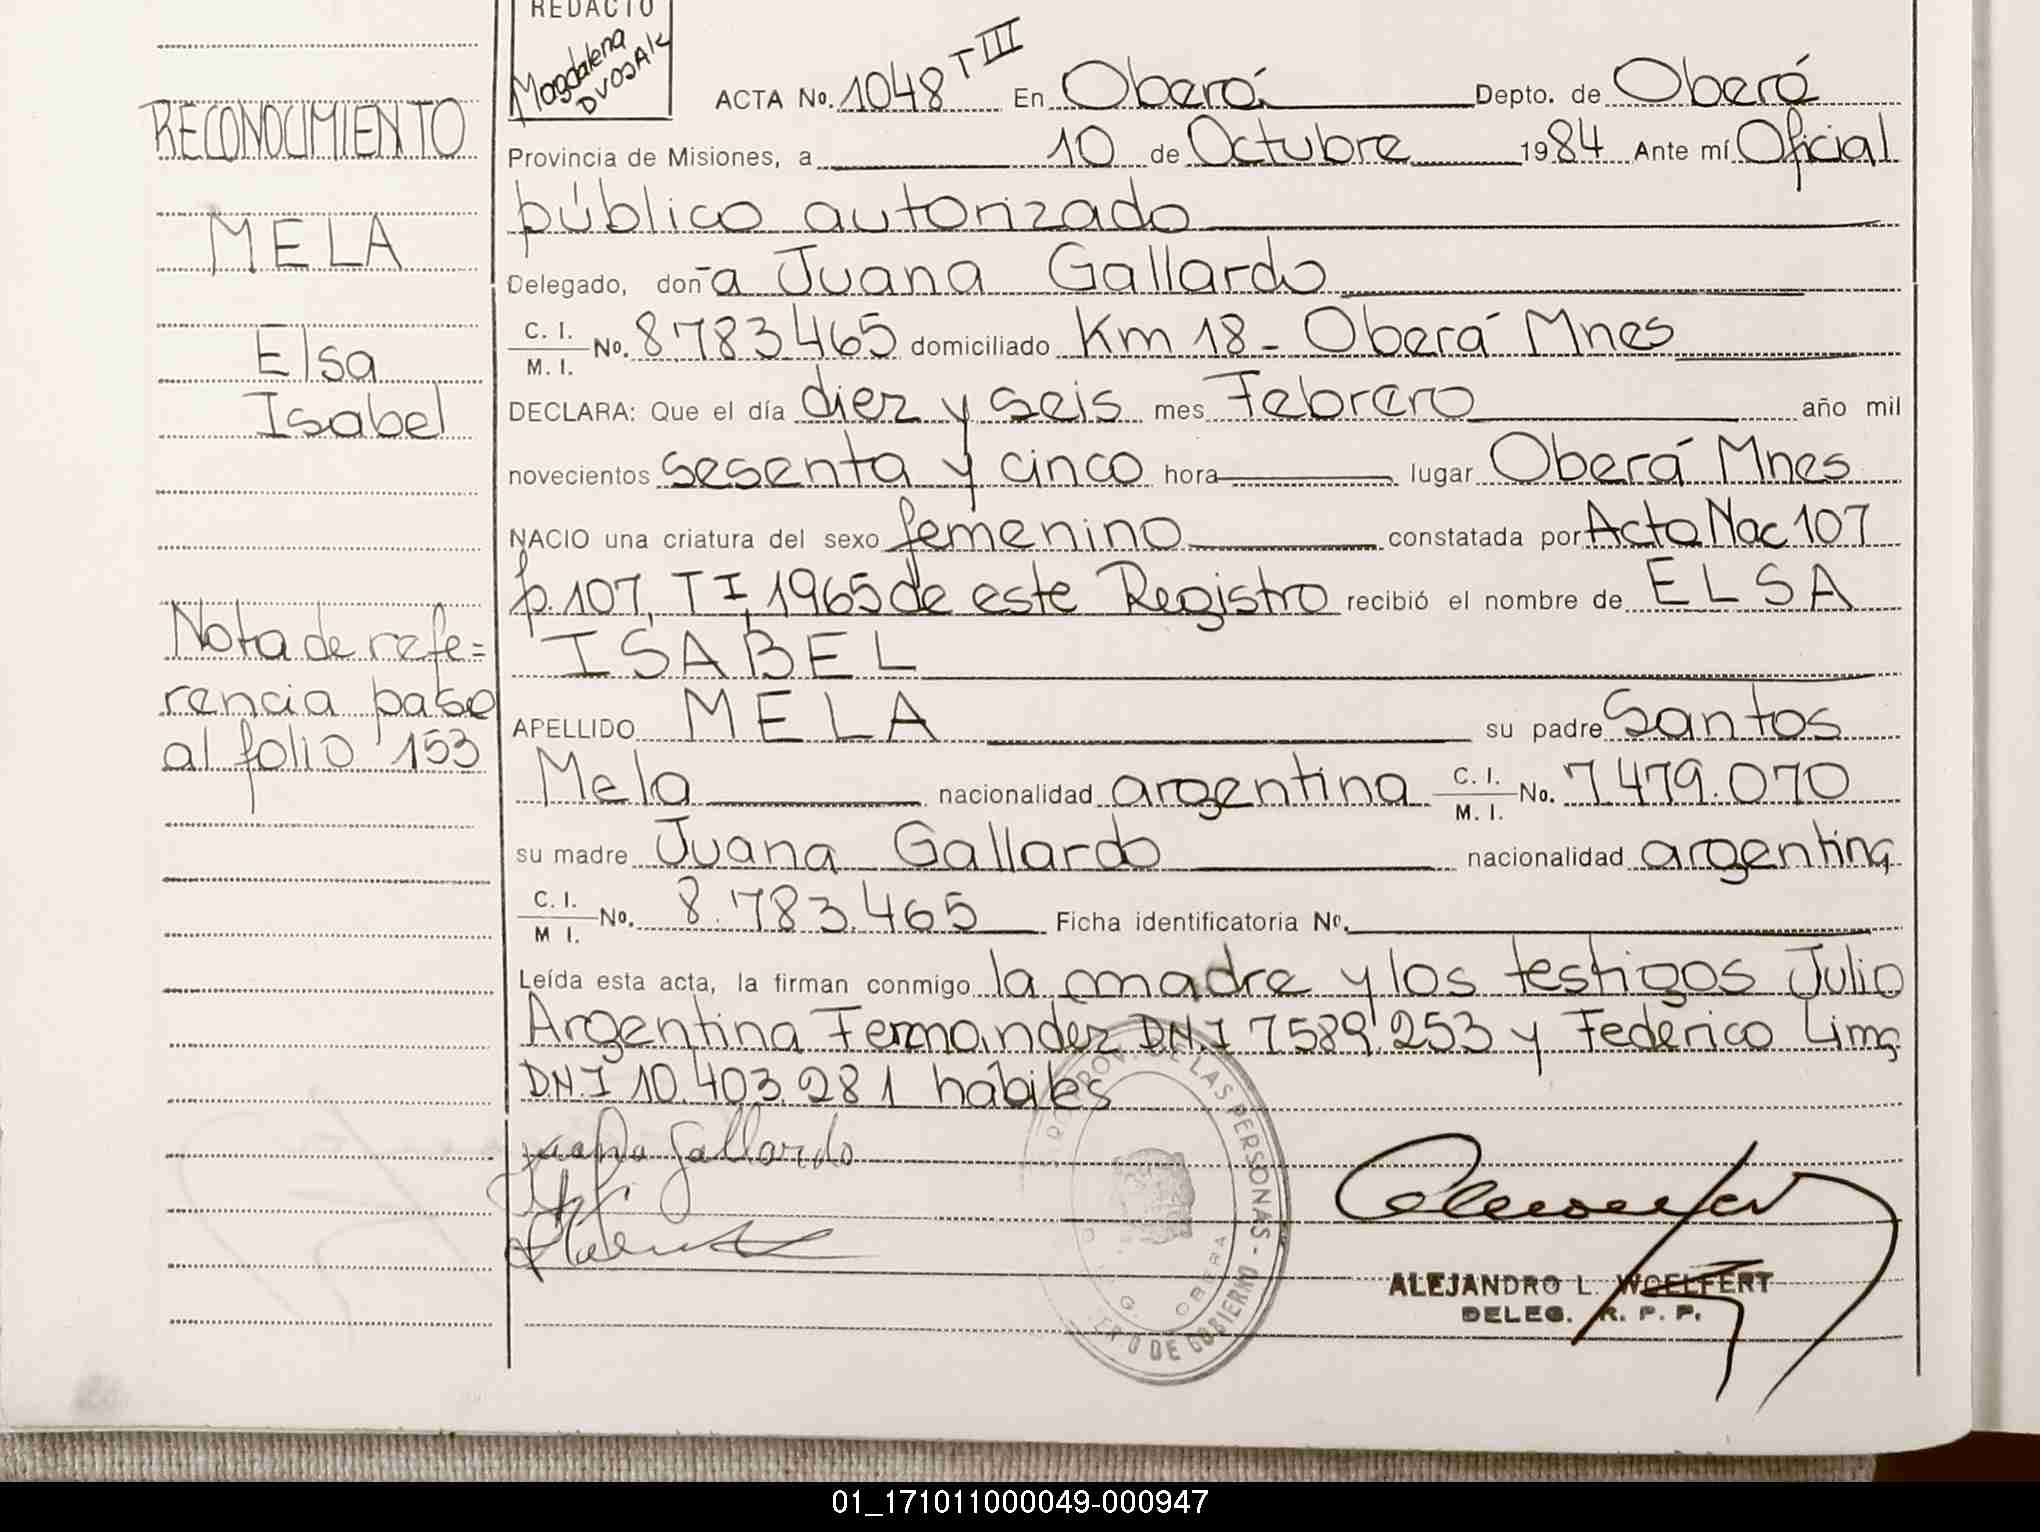 REDACTO
Magdalena
DVOSAK
RECONOCIMIENTO
MELA
Elsa
Isabel
Nota de refe=
rencia paso
al folio 153
ACTA No. 1048 T III En Oberá Depto. de Oberá
Provincia de Misiones, a 10 de Octubre 1984 Ante mí Oficial
público autorizado
Delegado, doña Juana Gallardo
C. I. / M. I. No. 8783465 domiciliado Km 18 - Oberá Mnes
DECLARA: Que el día diez y seis mes Febrero año mil
novecientos sesenta y cinco hora lugar Oberá Mnes
NACIO una criatura del sexo femenino constatada por Acta Nac 107
f. 107, T I, 1965 de este Registro recibió el nombre de ELSA
ISABEL
APELLIDO MELA su padre Santos
Mela nacionalidad argentina C. I. / M. I. No. 7.479.070
su madre Juana Gallardo nacionalidad argentina
C. I. / M I. No. 8.783.465 Ficha identificatoria No.
Leída esta acta, la firman conmigo la madre y los testigos Julio
Argentina Fernandez D.N.I 7589.253 y Federico Lima
D.N.I 10.403.281 hábiles
Juana Gallardo
PROV. DE LAS PERSONAS - 
DE GOBIERNO
OBERA
ALEJANDRO L. WOELFERT
DELEG. R. P. P.
01_171011000049-000947